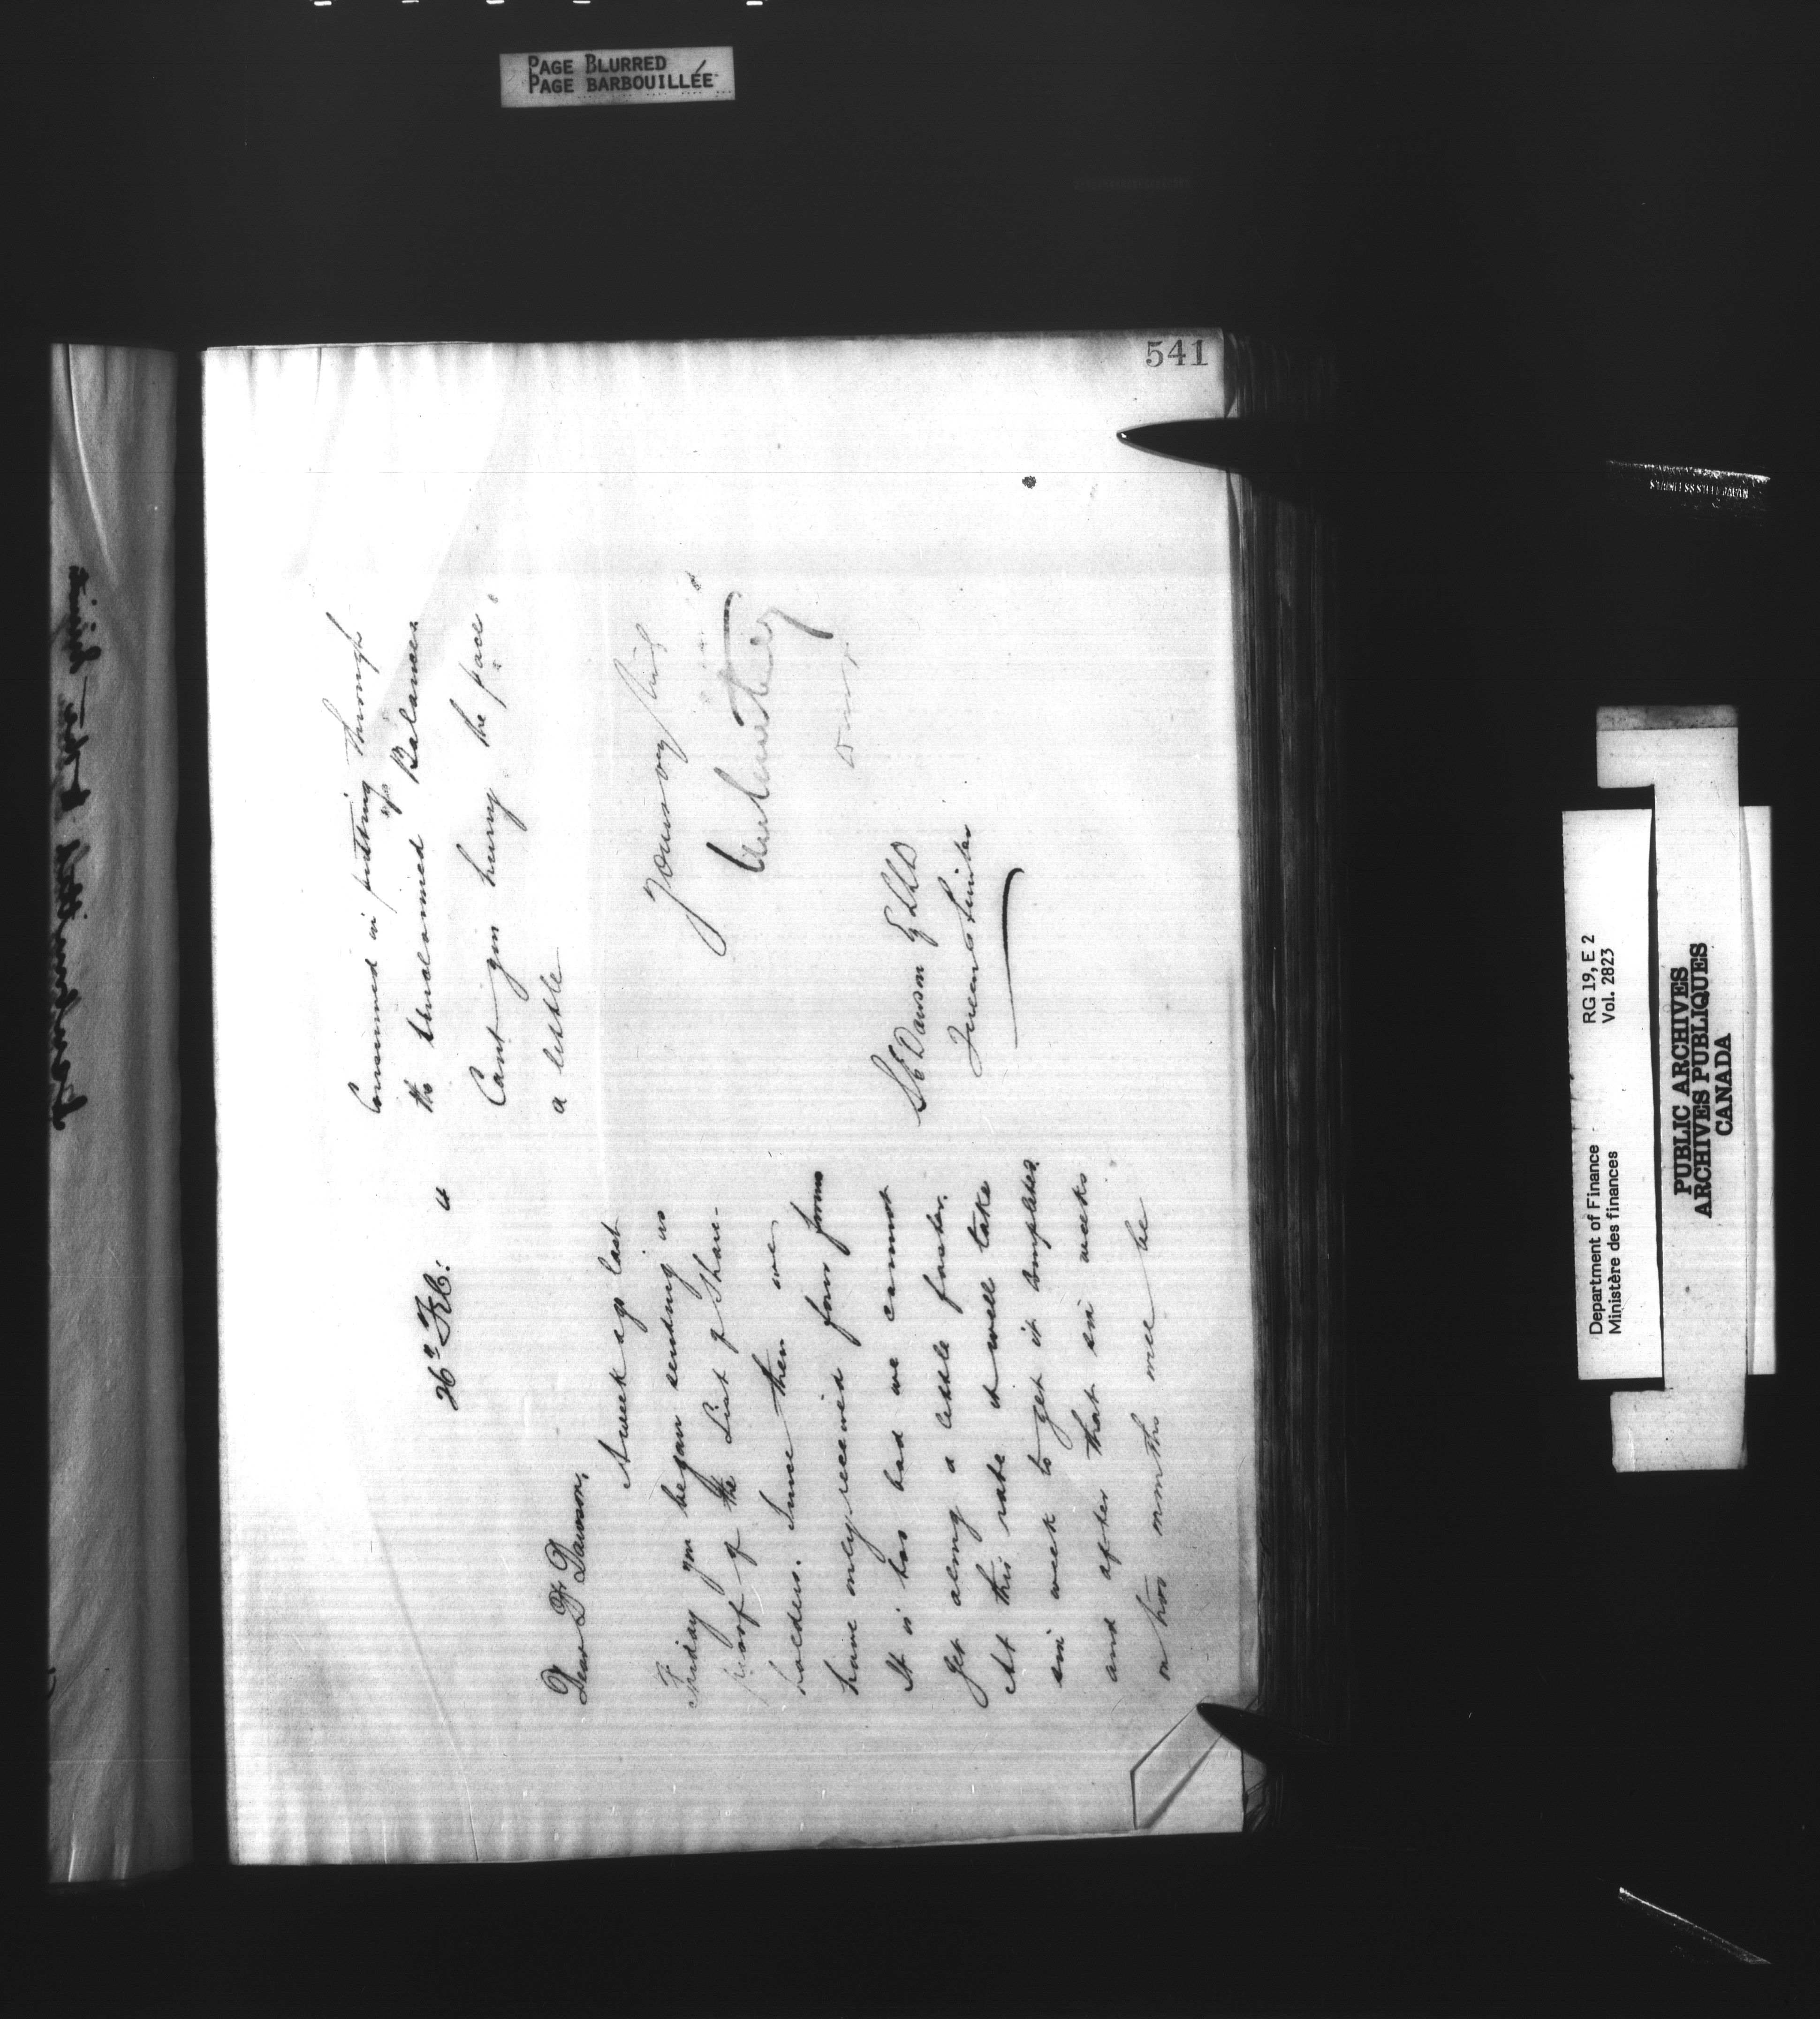 PAGE BLURRED
PAGE BARBOUILLÉE
541
26th Feb: 4
Dear Dr Dawson,
A week ago last
Friday you began sending us
proof of the List of Share-
holders. Since then we
have only received four forms
It is too bad we cannot
get along a little faster.
At this rate it will take
six week to get it completed.
and after that six weeks
or two months will be
Consumed in putting through
the Unclaimed Balances
Cant you hurry the pace,
a little
Yours very truly
S E Dawson Esq LLD
Queens Printer
Department of Finance
Ministère des finances
RG 19, E 2
Vol. 2823
PUBLIC ARCHIVES
ARCHIVES PUBLIQUES
CANADA